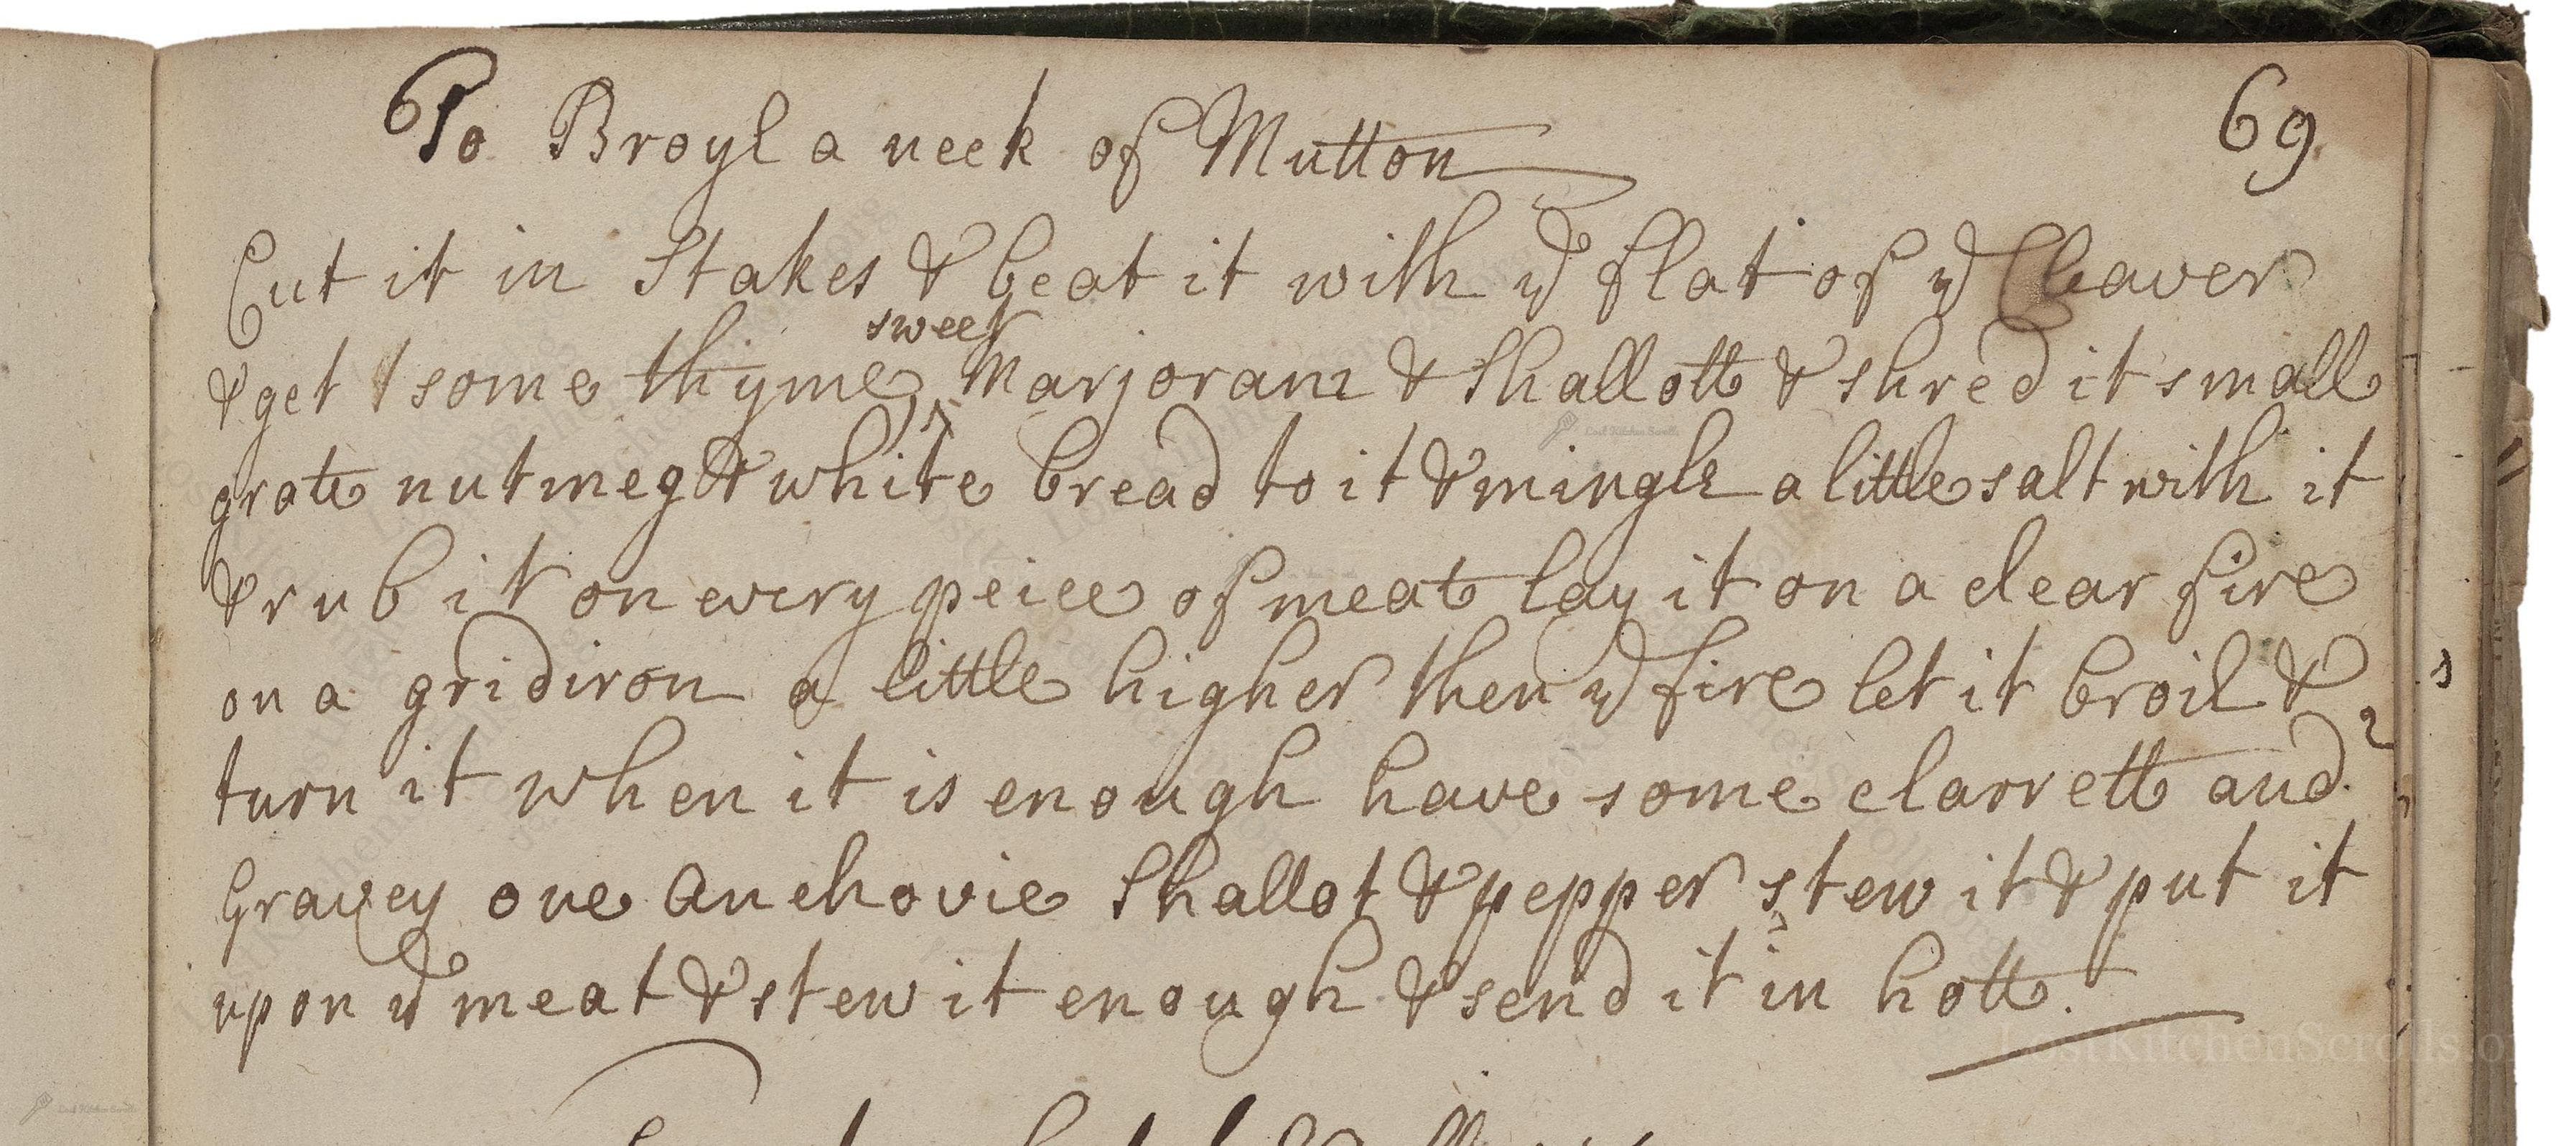 To Broyl a neck of Mutton
69
Cut it in Stakes & beat it with ye flat of ye Cleaver
sweet
& get some thyme, ^ Marjoram & Shallott & shred it small
grate nutmeg & white bread to it & mingle a little salt with it
& rub it on every peice of meat lay it on a clear fire
on a gridiron a little higher then ye fire let it broil &
turn it when it is enough have some clarrett and
Gravey one Anchovie Shallot & pepper stew it & put it
upon ye meat & stew it enough & send it in hott.
LostKitchenScrolls.o